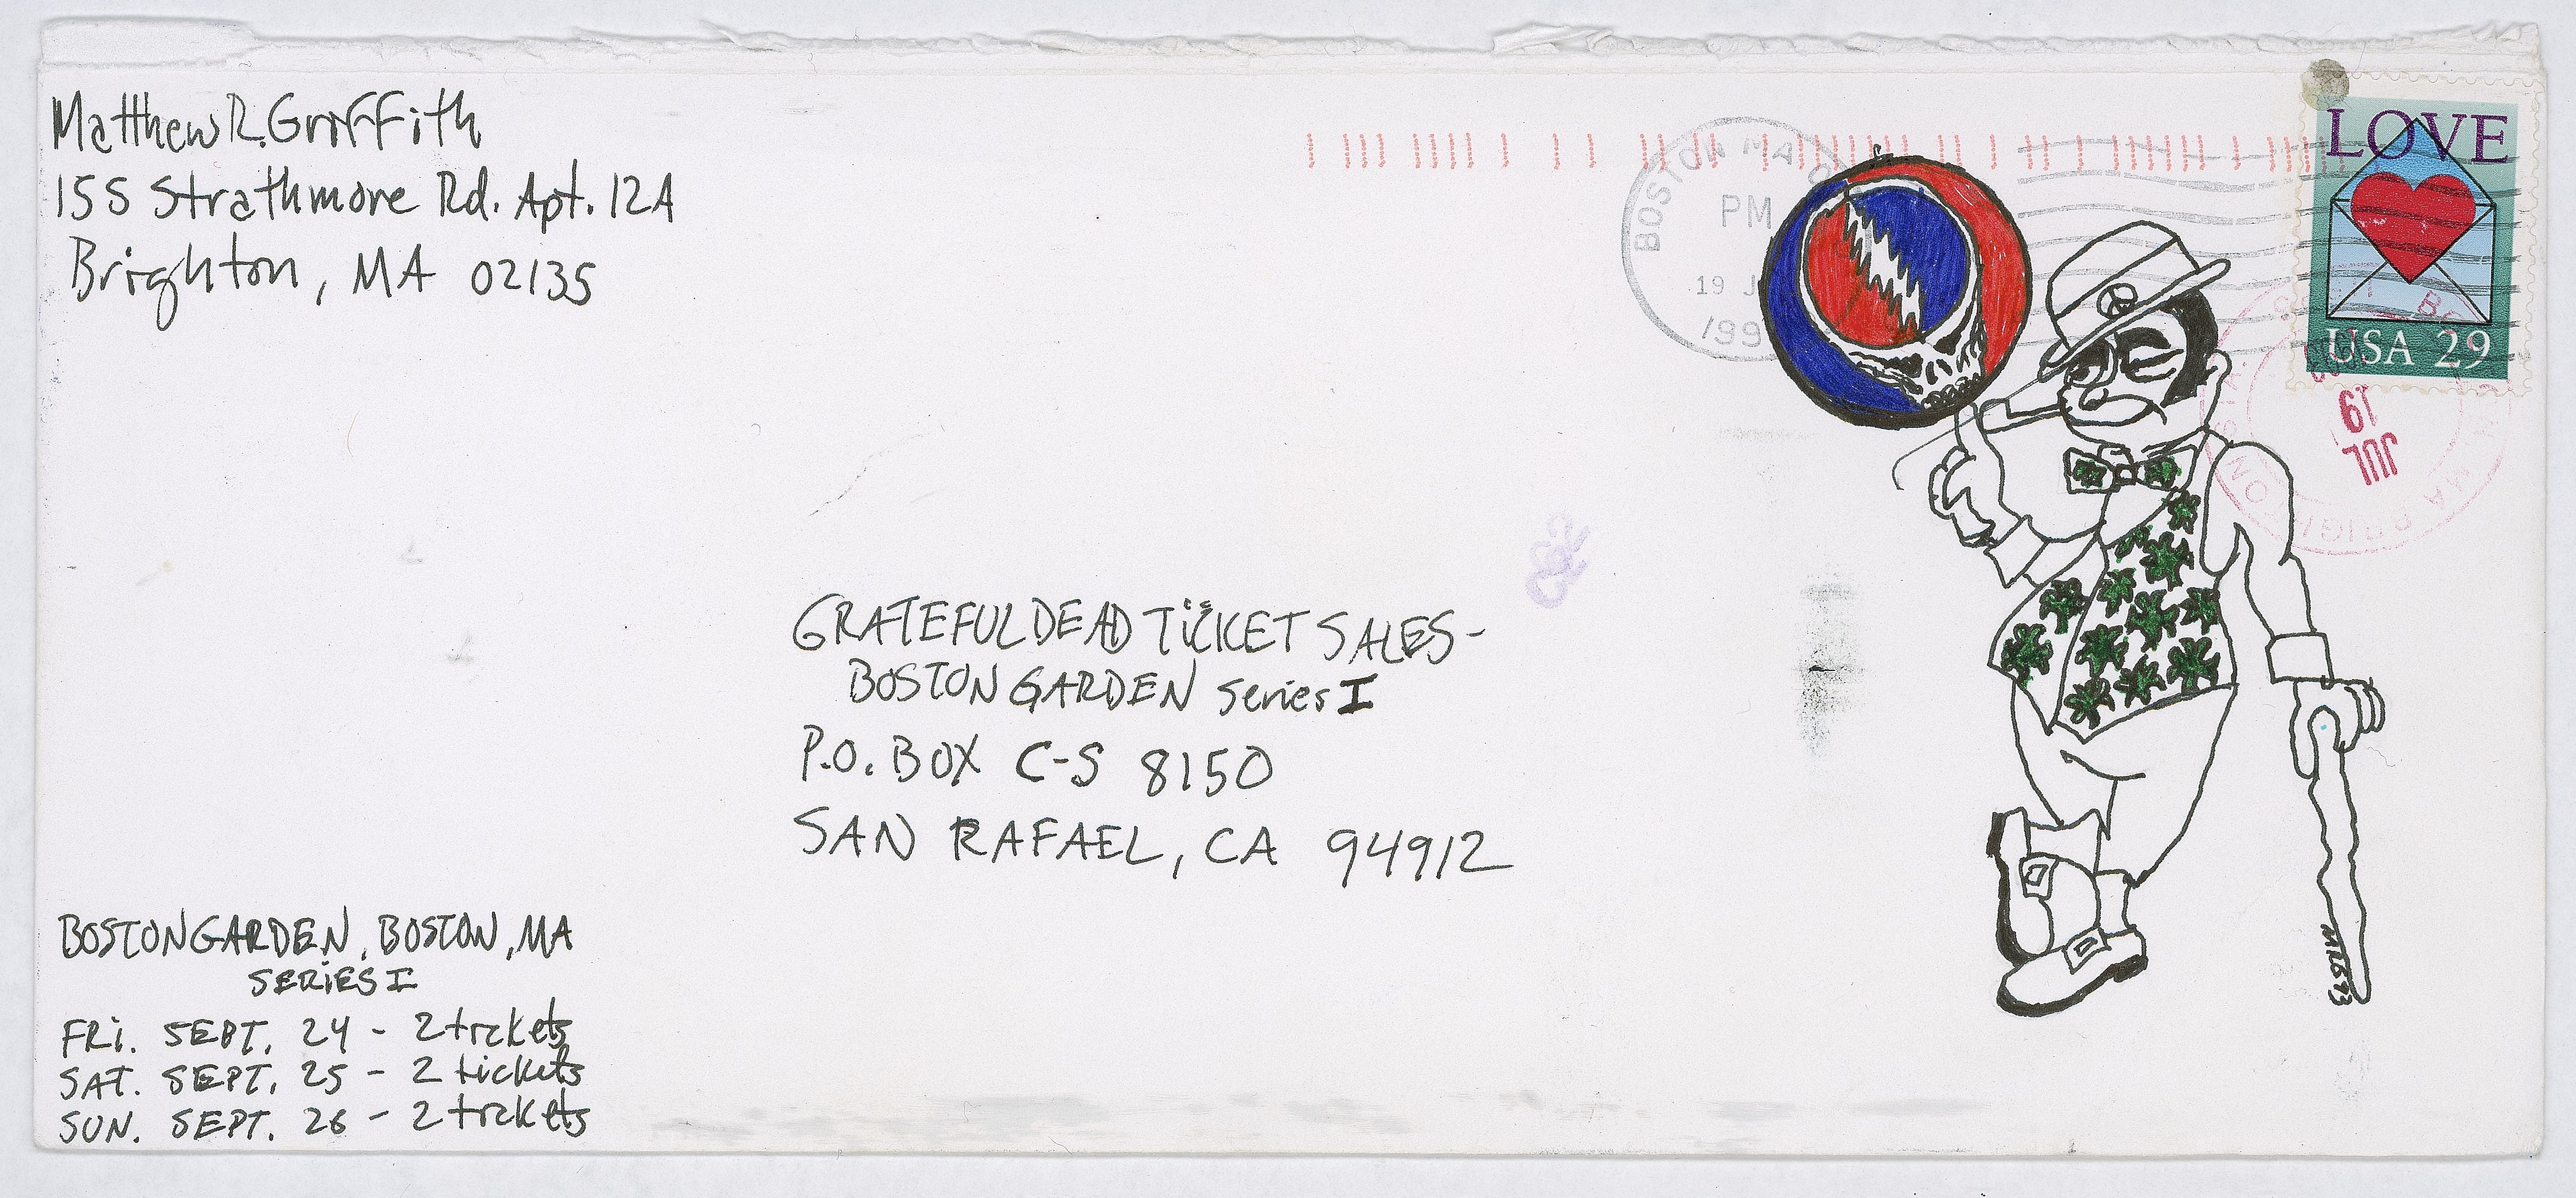 Matthew R. Griffith
155 Strathmore Rd. Apt. 12A
Brighton, MA 02135
BOSTON MA
PM
19
199
LOVE
USA 29
19
JUL
GRATEFUL DEAD TICKET SALES-
BOSTON GARDEN Series I
P.O. BOX C-S 8150
SAN RAFAEL, CA 94912
BOSTON GARDEN, BOSTON, MA
SERIES I
FRI. SEPT. 24 - 2 tickets
SAT. SEPT. 25 - 2 tickets
SUN. SEPT. 26 - 2 tickets
MRG 93